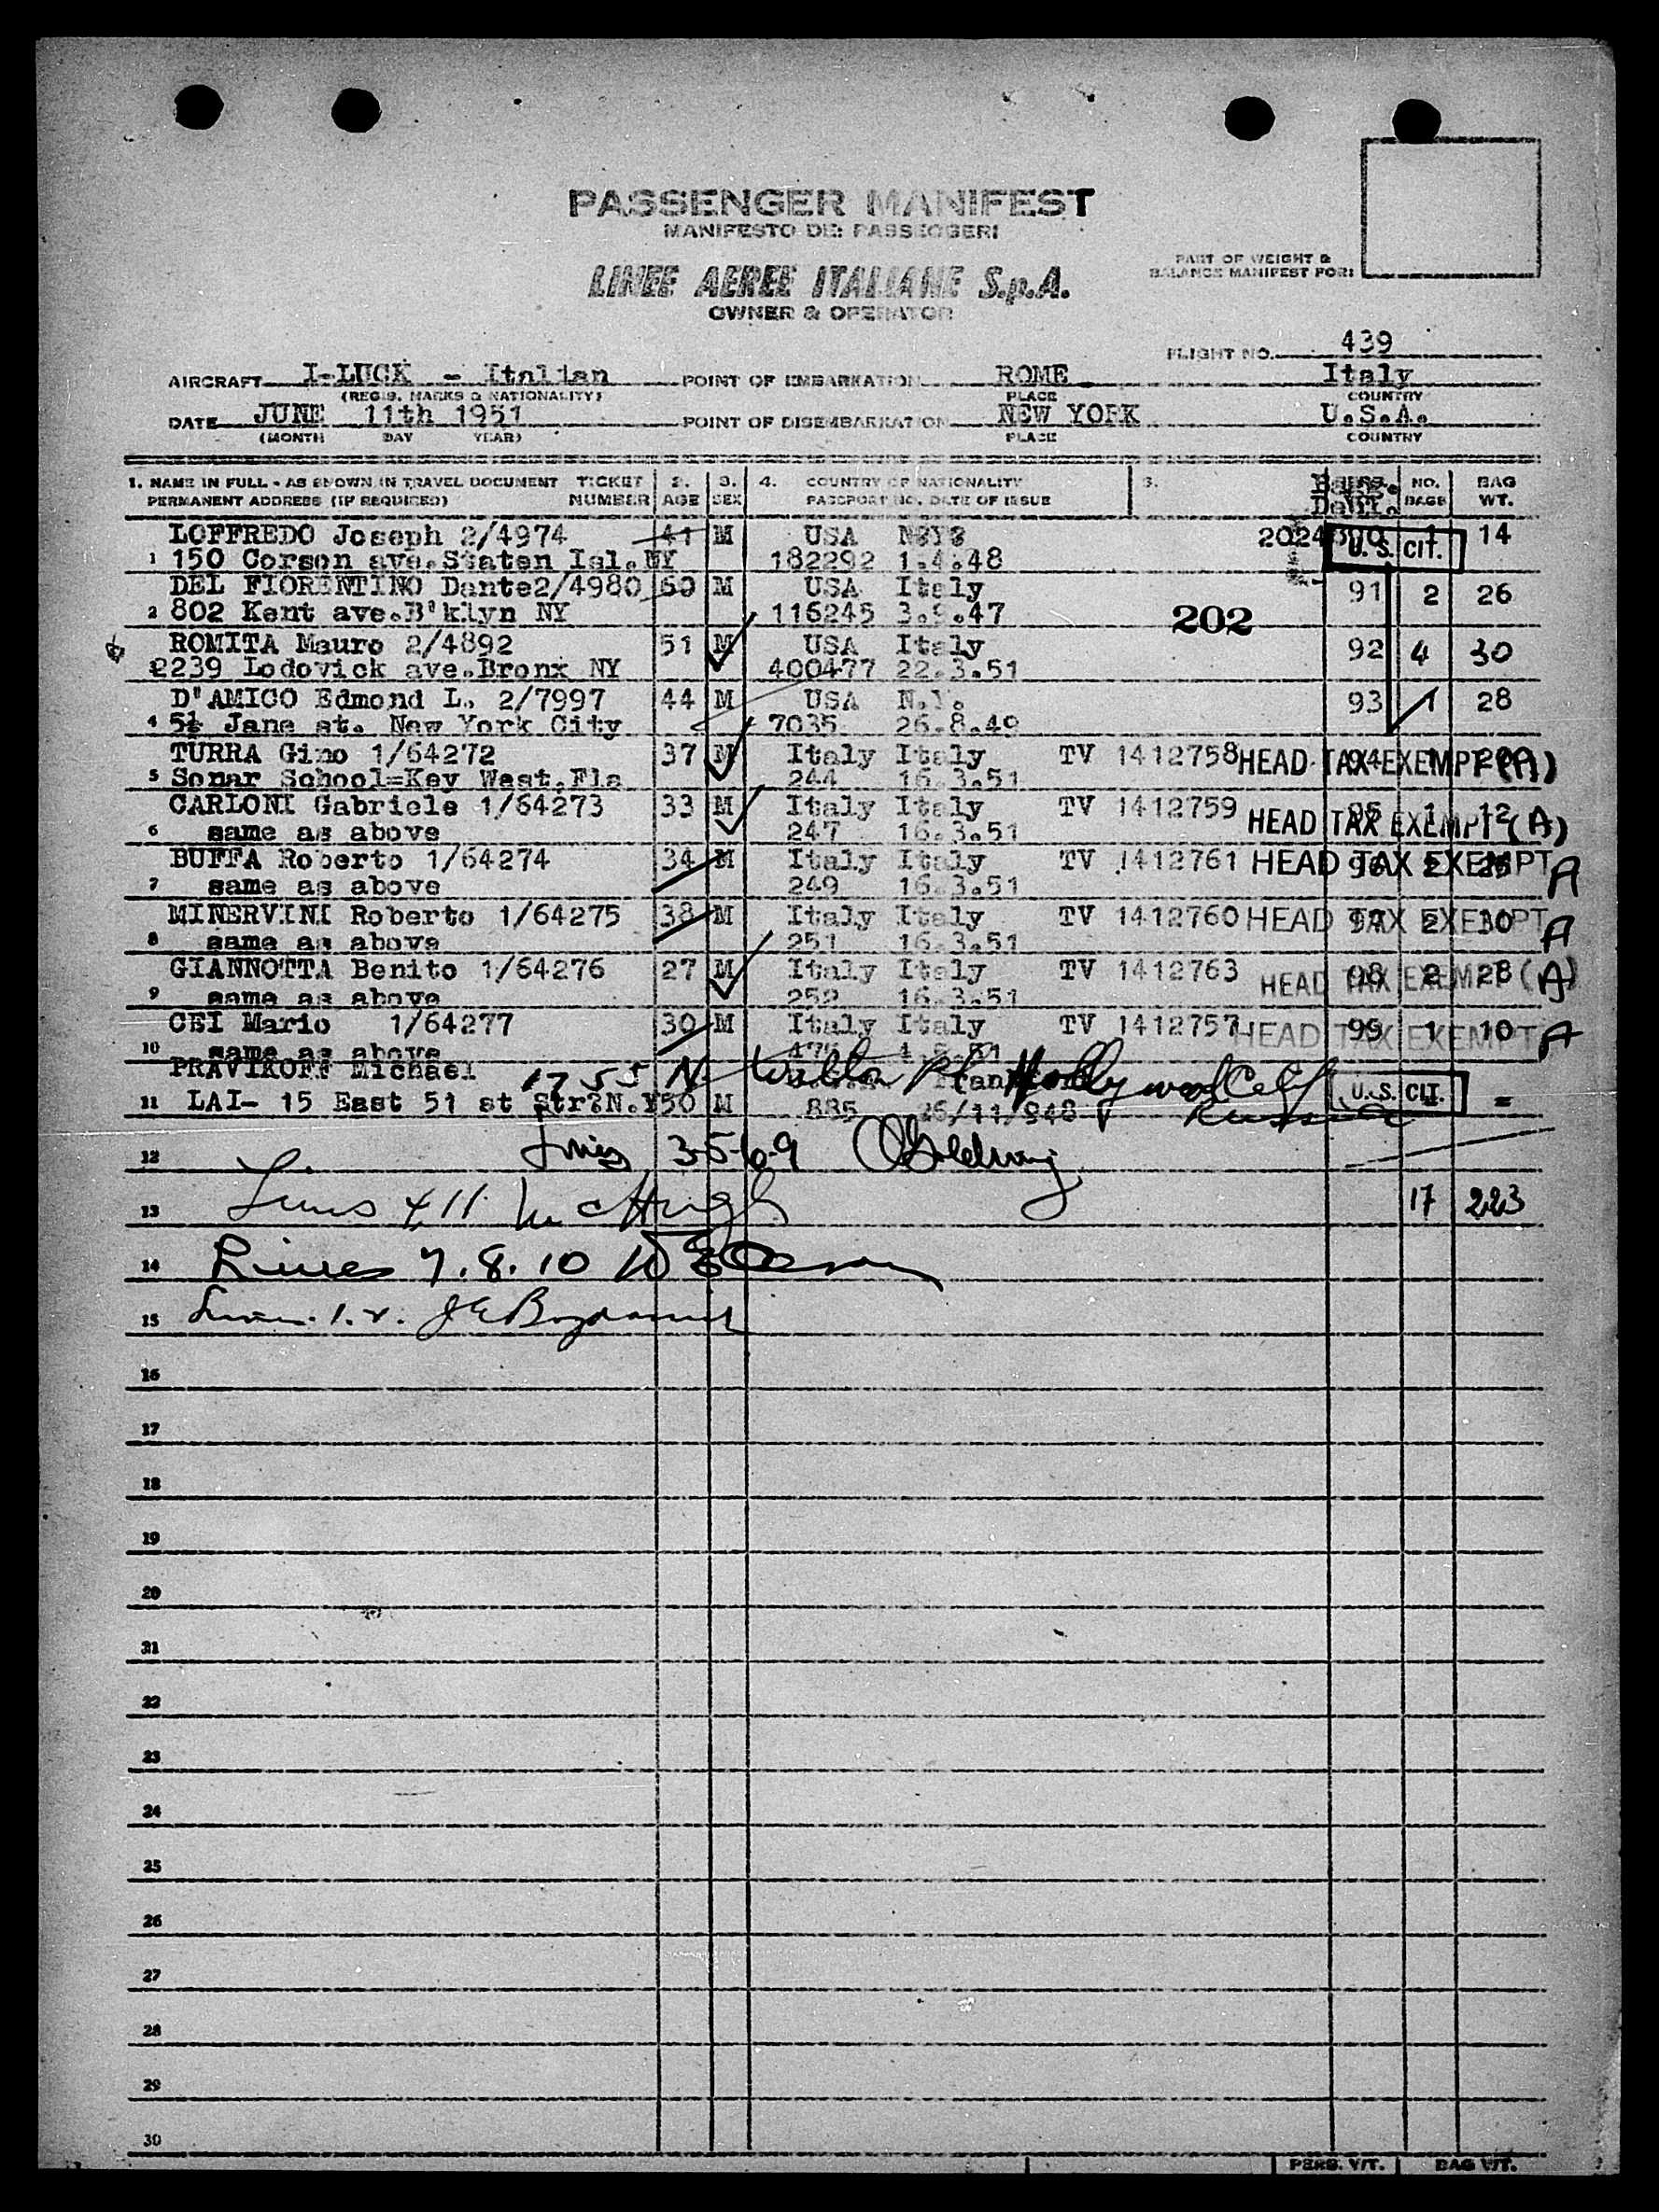 PASSENGER MANIFEST
MANIFESTO DEI PASSEGGERI
LINEE AEREE ITALIANE S.p.A.
OWNER & OPERATOR
PART OF WEIGHT &
BALANCE MANIFEST FOR:
FLIGHT NO. 439
AIRCRAFT I-LUCK - Italian POINT OF EMBARKATION ROME Italy
(REGIS. MARKS & NATIONALITY) PLACE COUNTRY
DATE JUNE 11th 1951 POINT OF DISEMBARKATION NEW YORK U.S.A.
(MONTH DAY YEAR) PLACE COUNTRY
1. NAME IN FULL - AS SHOWN IN TRAVEL DOCUMENT TICKET 2. 3. 4. COUNTRY OF NATIONALITY 5. NO. BAG
PERMANENT ADDRESS (IF REQUIRED) NUMBER AGE SEX PASSPORT NO. DATE OF ISSUE BAGS WT.
LOFFREDO Joseph 2/4974 41 M USA 1 14
1 150 Corson ave.Staten Isl.NY 182292 1.4.48 U.S. CIT.
DEL FIORENTINO Dante2/4980 60 M USA Italy 91 2 26
2 802 Kent ave.B'klyn NY 116245 3.9.47 202
ROMITA Mauro 2/4892 51 M USA Italy 92 4 30
2239 Lodovick ave.Bronx NY 400477 22.3.51
D'AMICO Edmond L. 2/7997 44 M USA N.Y. 93 1 28
4 5½ Jane st. New York City 7035 26.8.49
TURRA Gino 1/64272 37 M Italy Italy TV 1412758 HEAD TAX EXEMPT (A) 94 1
5 Sonar School=Key West.Fla 244 16.3.51
CARLONI Gabriele 1/64273 33 M Italy Italy TV 1412759 HEAD TAX EXEMPT (A) 95 1 12
6 same as above 247 16.3.51
BUFFA Roberto 1/64274 34 M Italy Italy TV 1412761 HEAD TAX EXEMPT A 96 2 25
7 same as above 249 16.3.51
MINERVINI Roberto 1/64275 38 M Italy Italy TV 1412760 HEAD TAX EXEMPT A 97 2 30
8 same as above 251 16.3.51
GIANNOTTA Benito 1/64276 27 M Italy Italy TV 1412763 HEAD TAX EXEMPT (A) 98 2 28
9 same as above 252 16.3.51
CEI Mario 1/64277 30 M Italy Italy TV 1412757 HEAD TAX EXEMPT A 99 1 10
10 same as above
PRAVIKOFF Michael 1755 N. Pl Hollywood Calif
11 LAI- 15 East 51 st Str.N.Y 50 M 885 26/11/948 Russia U.S. CIT. =
12 Lines 3-5-6-9
13 Lines 4,11 McHugh 17 223
14 Lines 7.8.10
15
16
17
18
19
20
21
22
23
24
25
26
27
28
29
30
PERS. WT. BAG WT.